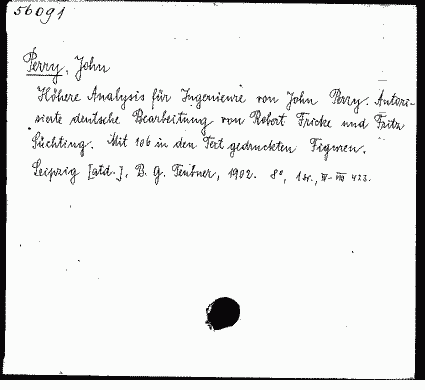 56091
Perry, John
Höhere Analysis für Ingenieure von John Perry. Autori-
sierte deutsche Bearbeitung von Robert Fricke und Fritz
Süchting. Mit 106 in den Text gedruckten Figuren.
Leipzig [atd.], B. G. Teubner, 1902. 8°, 1 sv., IV-VIII 423.